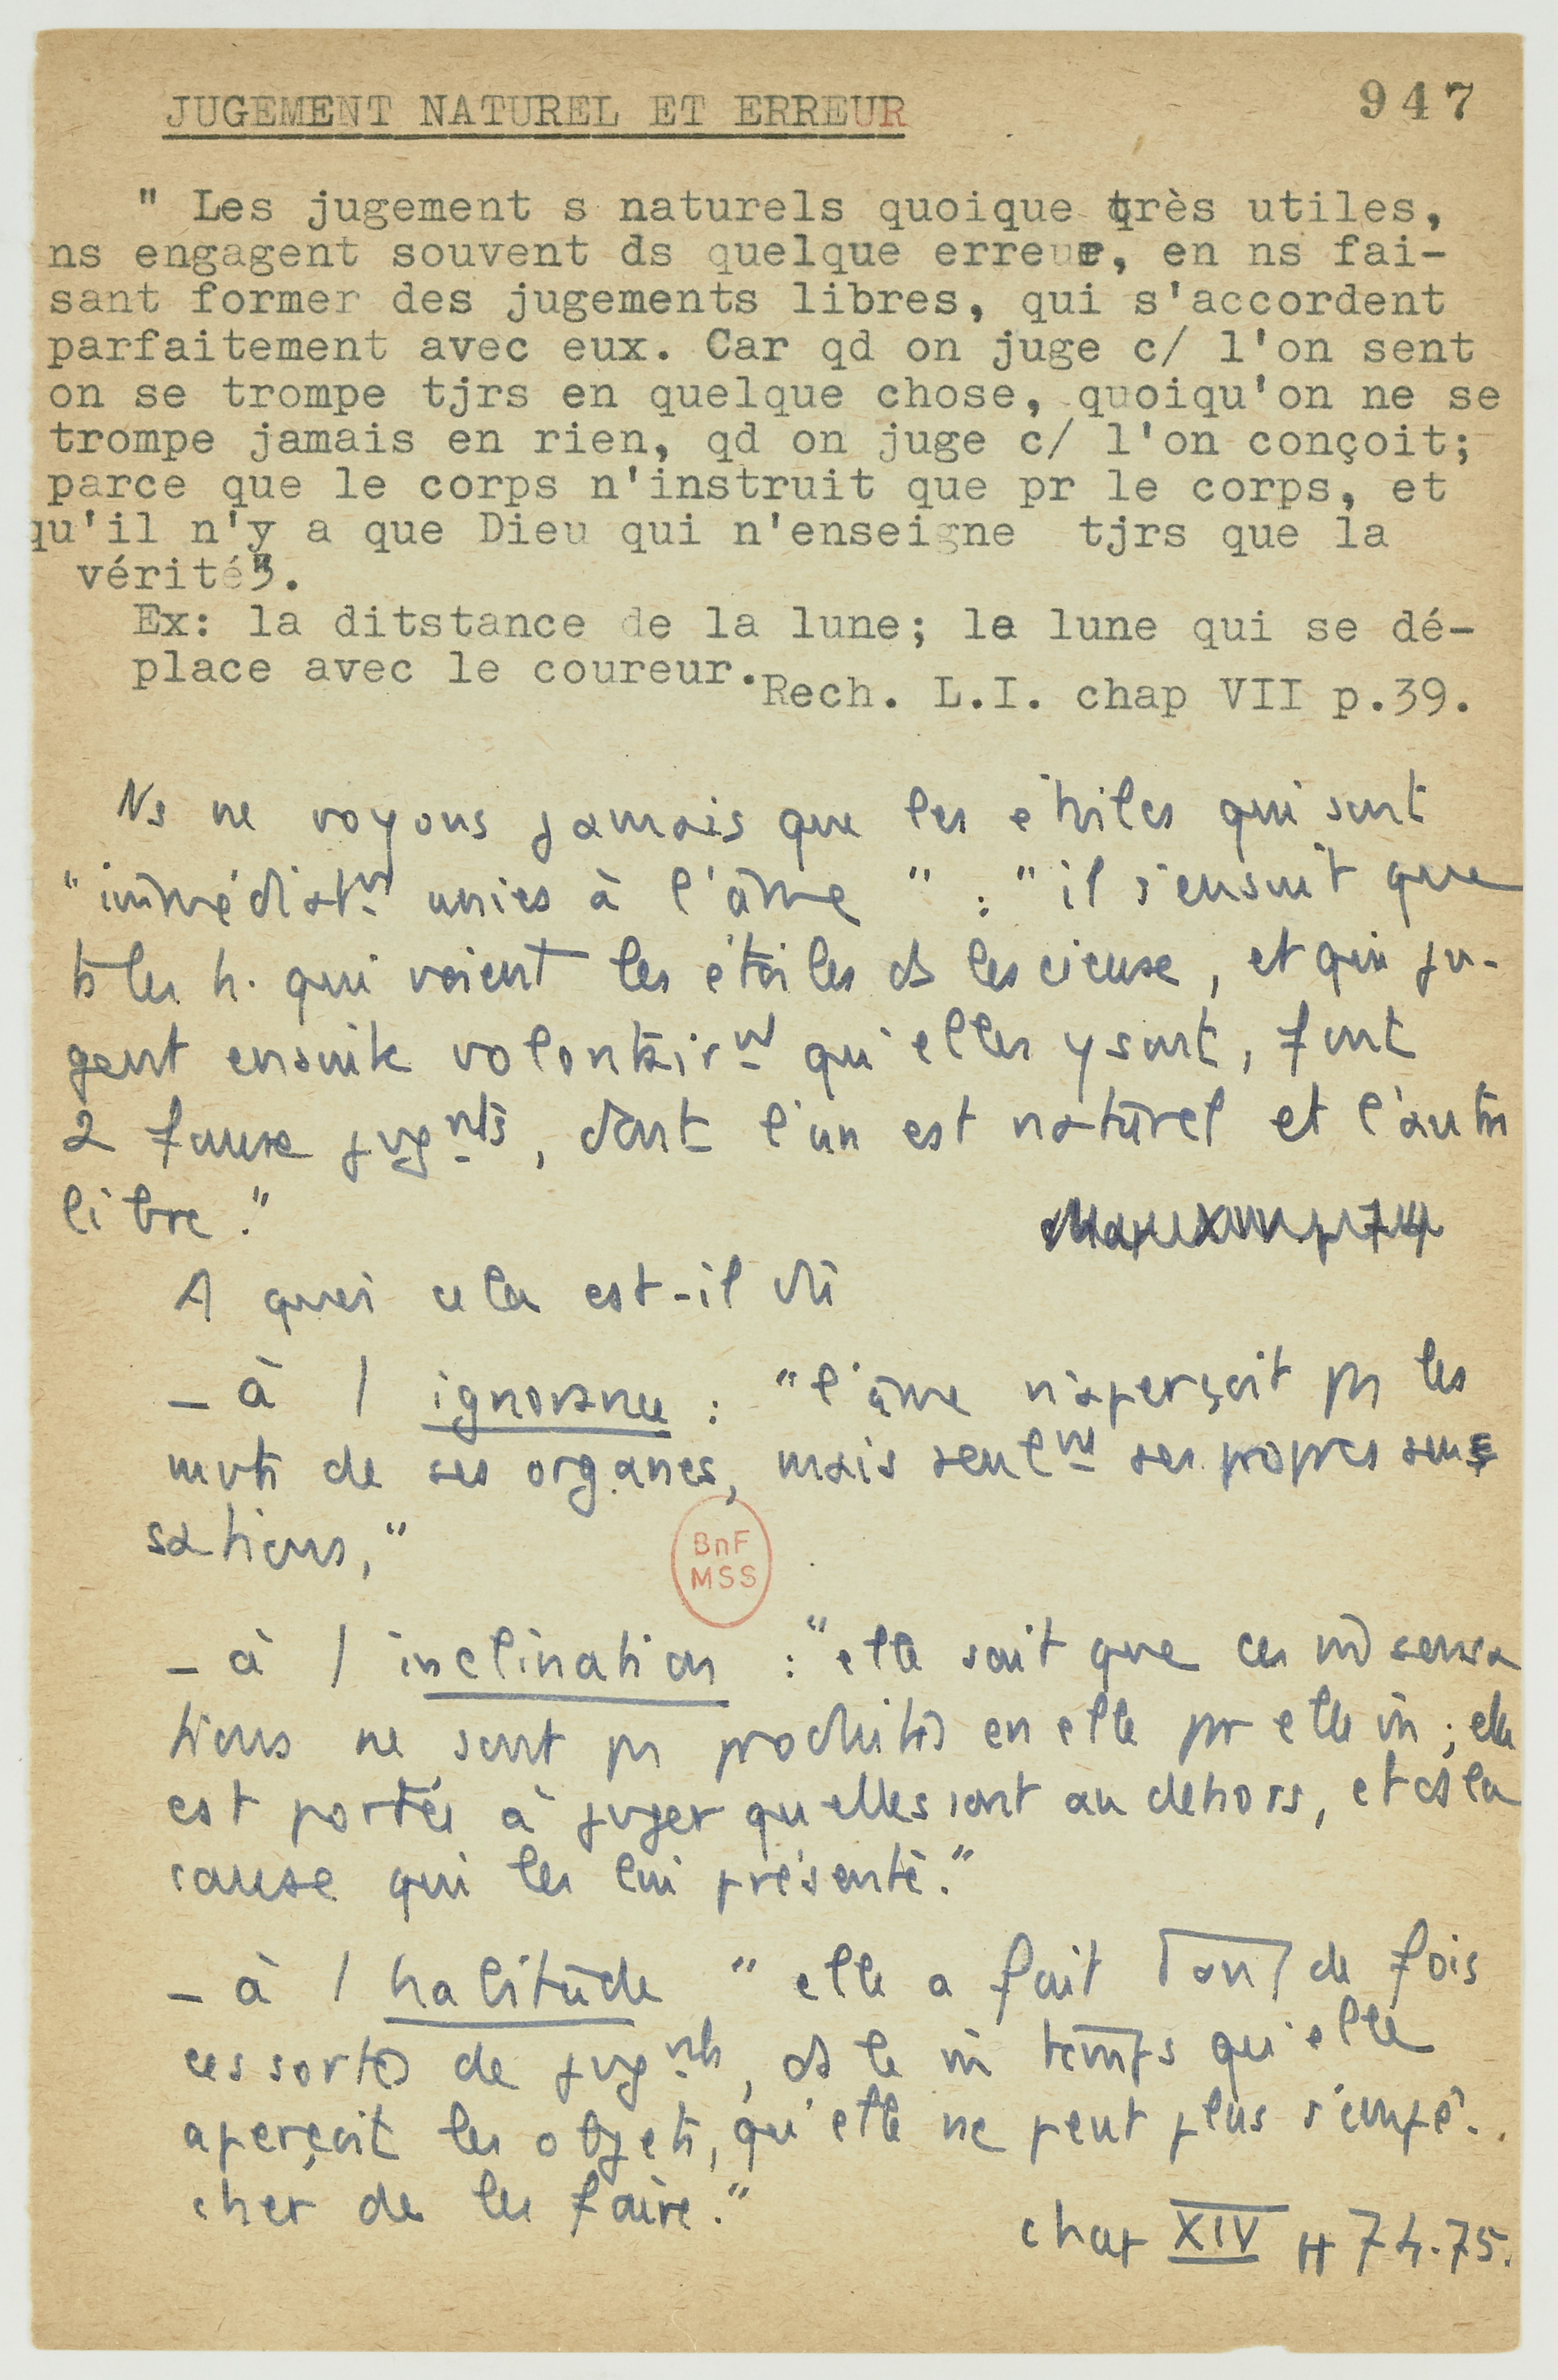 JUGEMENT NATUREL ET ERREUR
947
" Les jugement s naturels quoique très utiles,
ns engagent souvent ds quelque erreur, en ns fai-
sant former des jugements libres, qui s'accordent
parfaitement avec eux. Car qd on juge c/ l'on sent
on se trompe tjrs en quelque chose, quoiqu'on ne se
trompe jamais en rien, qd on juge c/ l'on conçoit;
parce que le corps n'instruit que pr le corps, et
qu'il n'y a que Dieu qui n'enseigne tjrs que la
vérité".
Ex: la ditstance de la lune; la lune qui se dé-
place avec le coureur.
Rech. L.I. chap VII p.39.
Ns ne voyons jamais que les étoiles qui sont
"immédiatmt unies à l'âme" : "il s'ensuit que
ts les h. qui voient les étoiles ds les cieux, et qui ju-
gent ensuite volontairmt qu'elles y sont, font
2 faux jugmts, dont l'un est naturel et l'autre
libre."
A quoi cela est-il dû
- à l ignorance : "l'âme n'aperçoit ps les
mvts de ses organes, mais seulmt ses propres sen
sations,"
BnF
MSS
- à l inclination : "elle sait que ces sensa
tions ne sont ps produites en elle pr elle m̂; elle
est portée à juger qu'elles sont au dehors, et ds la
cause qui les lui présente."
- à l habitude "elle a fait tant de fois
ces sortes de jugmts, ds le m̂ temps qu'elle
aperçoit les objets, qu'elle ne peut plus s'empê-
cher de les faire."
chap XIV pp 74-75.